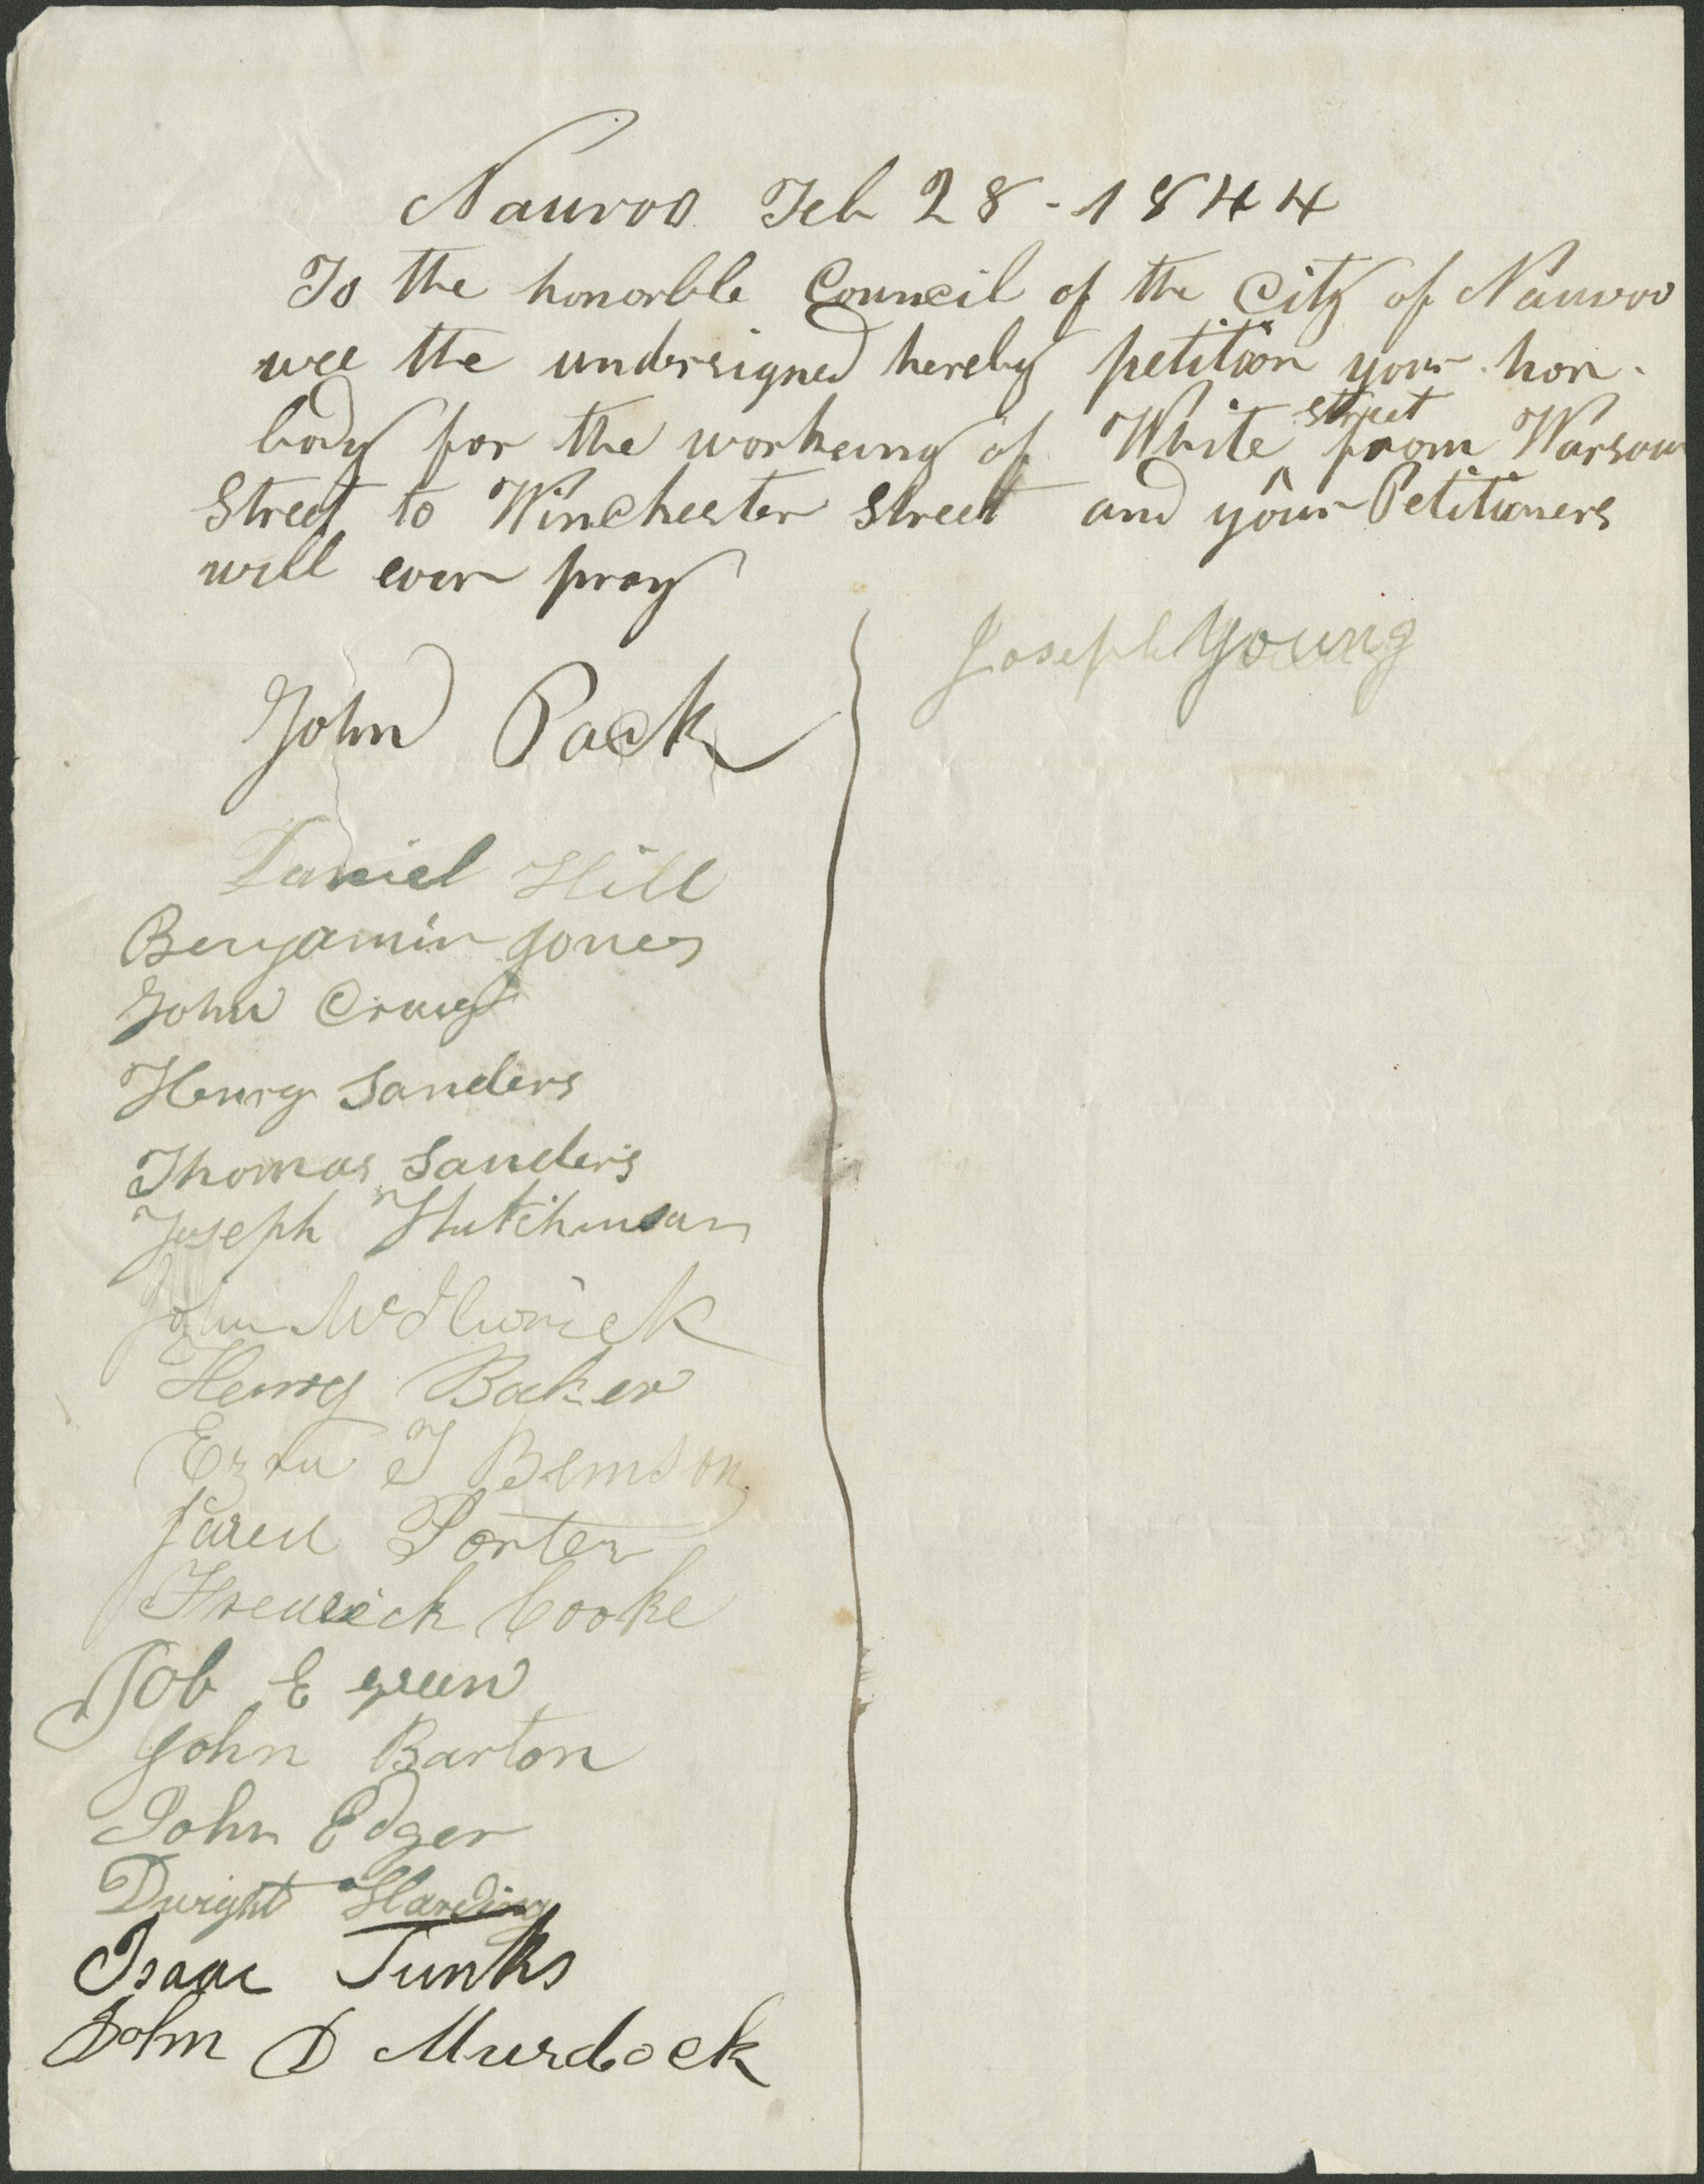 Nauvoo Feb 28-1844
To the honorble Council of the City of Nauvoo
wee the undersigned hereby petition your hon.
body for the workeing of White street from Warsaw
Street to Winchester Street and your Petitioners
will ever pray
John Pack
Daniel Hill
Benjamin Jones
John Craig
Henry Sanders
Thomas Sanders
Joseph Hutchinson
John
Henry Baker
Ezra T
Jared Porter
Fredrick Cooke
Job E green
John Barton
John Edger
Dwight Harding
Isaac Junks
John D Murdock
Joseph Young